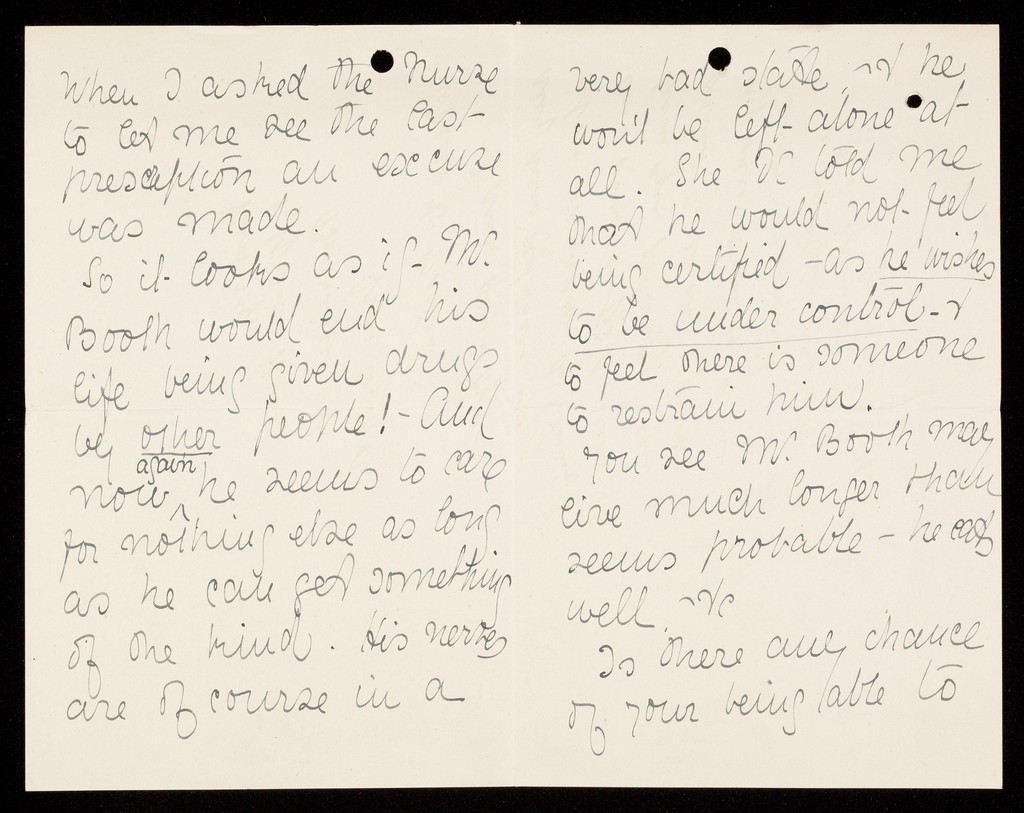 When I asked the Nurse
to let me see the last
prescription an excuse
was made.
So it looks as if Mr.
Booth would end his
life being given drugs
by other people! - And
again
now he seems to care
for nothing else as long
as he can get something
of the kind. His nerves
are of course in a
very bad state, & he
won't be left alone at
all. She told me
that he would not feel
being certified - as he wishes
to be under control - &
to feel there is someone
to restrain him.
You see Mr. Booth may
live much longer than
seems probable - he eats
well, &c
Is there any chance
of your being able to